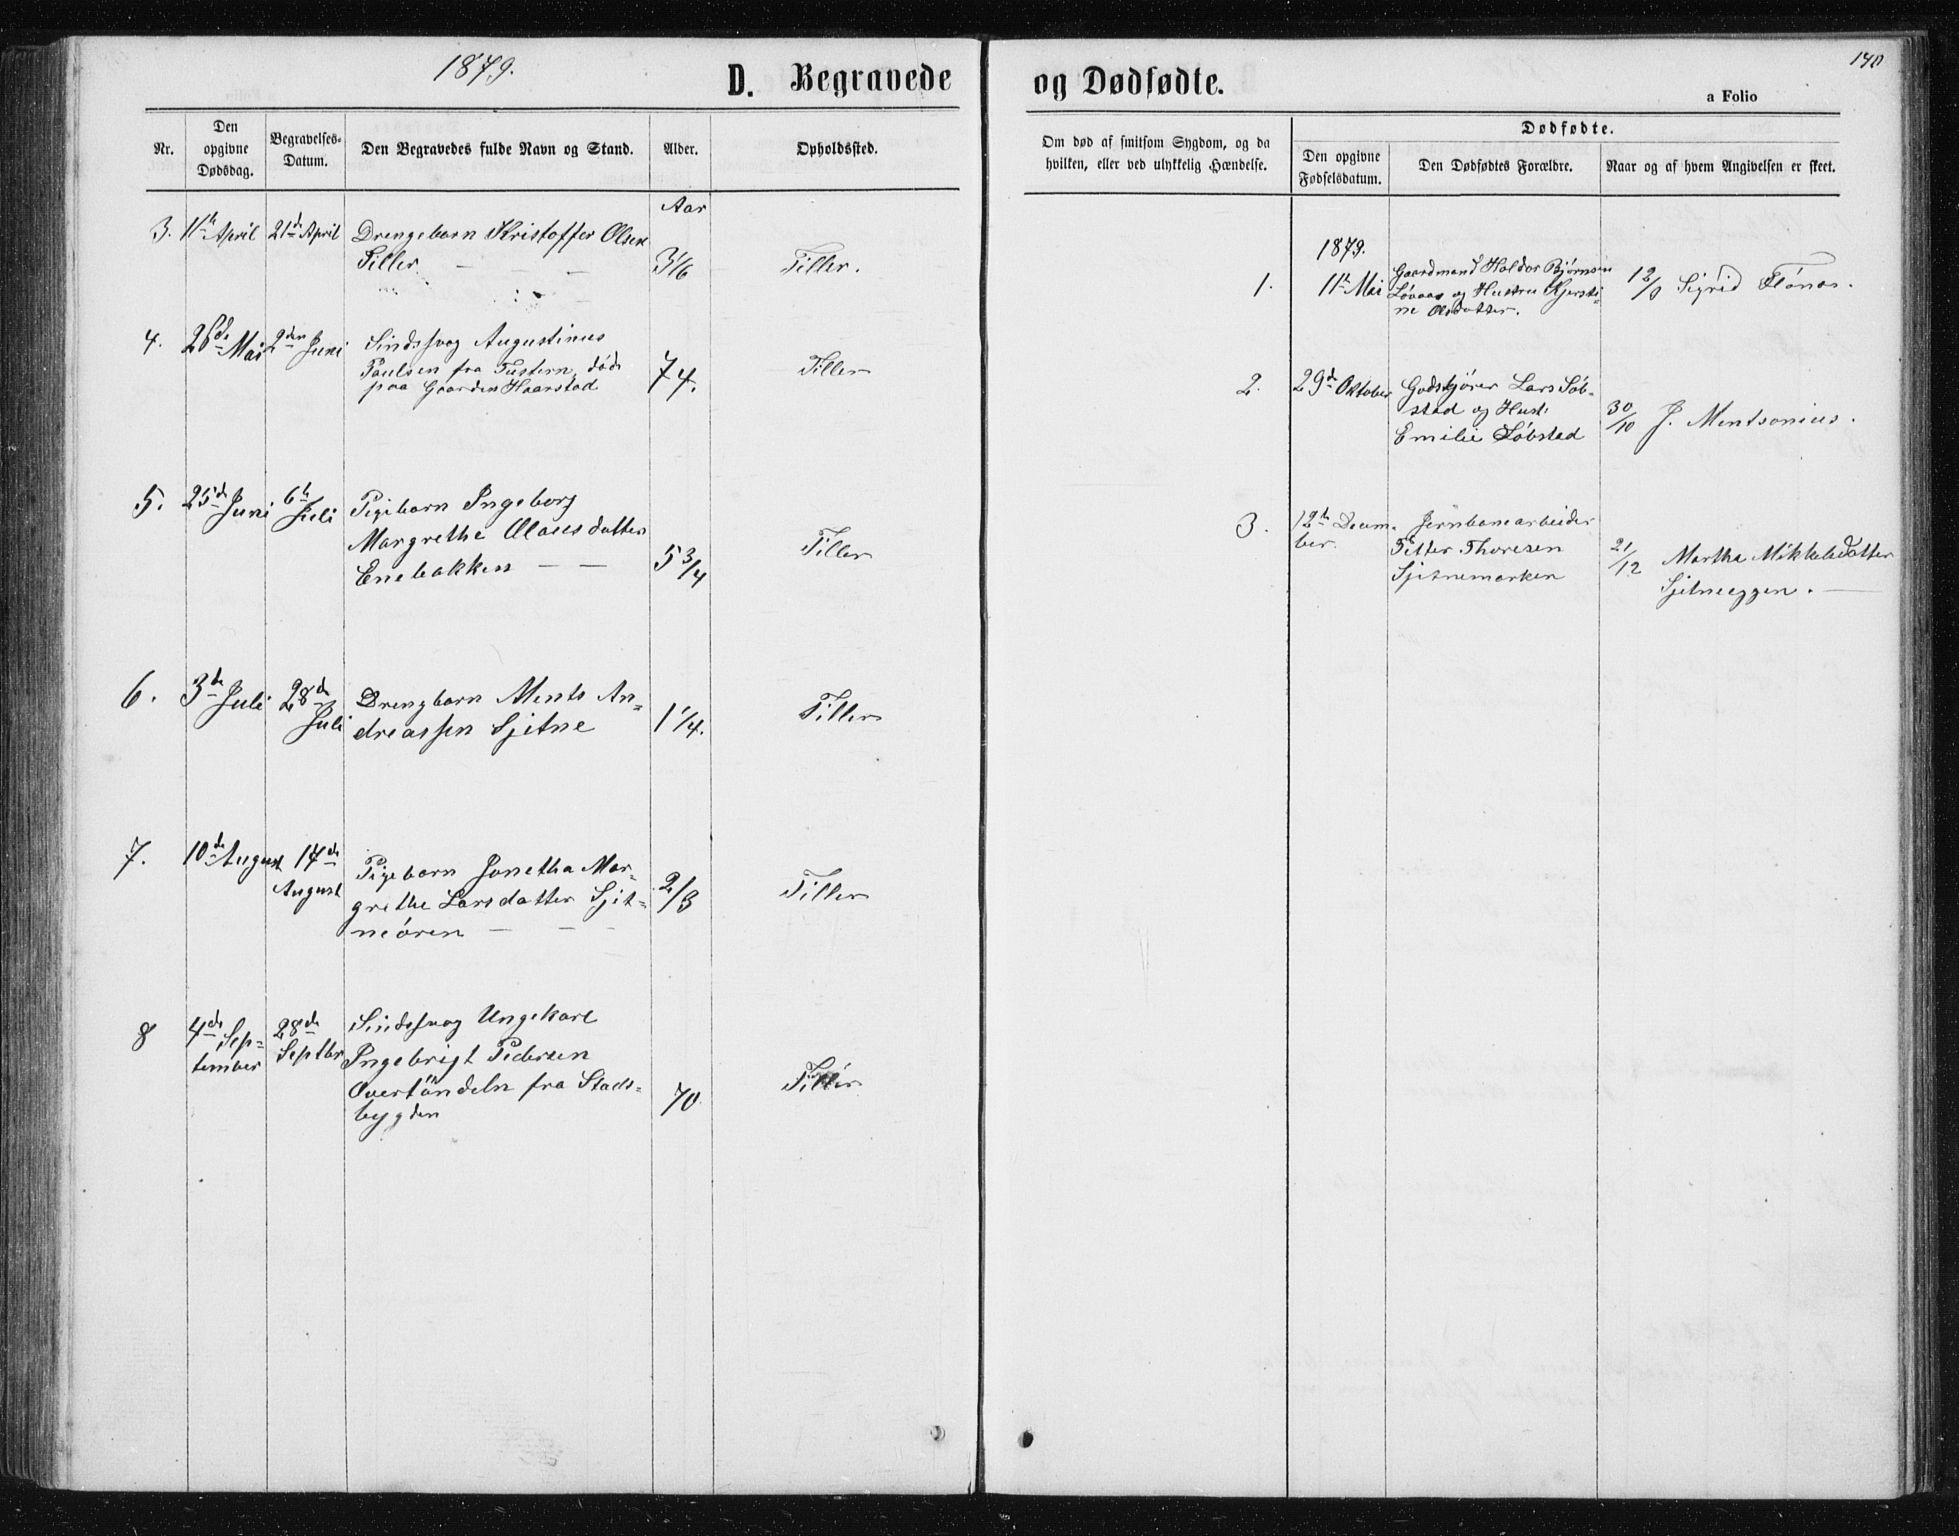 1879.
D. Begravede
Nr.
Den opgivne Dødsdag.
Begravelses-Datum.
Den Begravedes fulde Navn og Stand.
Alder.
Opholdssted.
Aar
3. 11te April 21de April Drengebarn Kristoffer Olsen
Tiller 3 1/6 Tiller.
4. 26de Mai 2den Juni Sindssvag Augustinus
Paulsen fra Tustern, död
paa Gaarden Haarstad 74. Tiller
5. 25de Juni 6te Juli Pigebarn Ingeborg
Margrethe Olausdatter
Enebakken 5 3/4 Tiller
6. 3de Juli 28de Juli Drengbarn Ments An-
dreassen Sjetne 1 1/4. Tiller
7. 10de August 17de August Pigebarn Jonetha Mar-
grethe Larsdatter Sjet-
neören 2/3 Tiller
8 4de Sep-
tember 28de Septbr Sindssvag Ungekarl
Ingebrigt Pedersen
fra Stads-
bygden 70 Tiller
140
og Dødfødte.
a Folio
Om død af smitsom Sygdom, og da
hvilken, eller ved ulykkelig Hændelse.
Dødfødte.
Den opgivne Fødselsdatum.
Den Dødfødtes Forældre.
Naar og af hvem Angivelsen er skeet.
1879.
1. 11te Mai Gaardmand Haldor Bjørnsen
Løvaas og Hustru Kjersti-
ne Olsdatter. Sigrid
2. 29de Oktober Lars Söb-
stad og Hust:
Emilie Söbstad 30/10 J. Mentsonius.
3. 12te Decem-
ber. Jernbanearbeider
Petter Thoresen
Sjetnemarken 21/12 Martha Mikkelsdatter
Sjetneeggen.